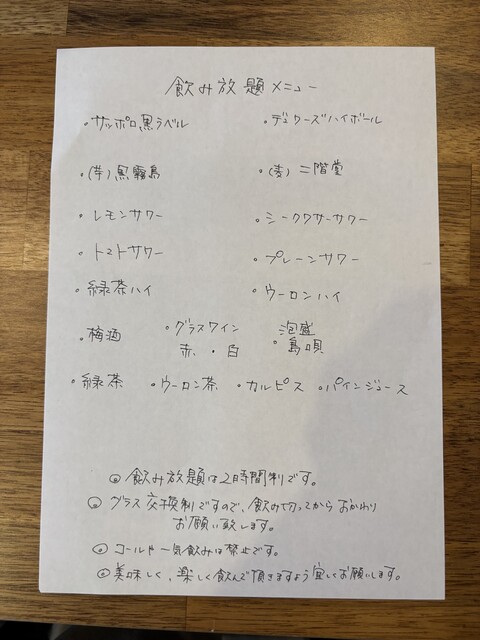 飲み放題メニュー
・サッポロ黒ラベル ・デュワーズハイボール
・(芋)黒霧島 ・(麦)二階堂
・レモンサワー ・シークワサーサワー
・トマトサワー ・プレーンサワー
・緑茶ハイ ・ウーロンハイ
・梅酒 ・グラスワイン 赤・白 ・泡盛 島唄
・緑茶 ・ウーロン茶 ・カルピス ・パインジュース
◎飲み放題は2時間制です。
◎グラス交換制ですので、飲み切ってからおかわり
お願い致します。
◎コールや一気飲みは禁止です。
◎美味しく、楽しく飲んで頂きますよう宜しくお願いします。